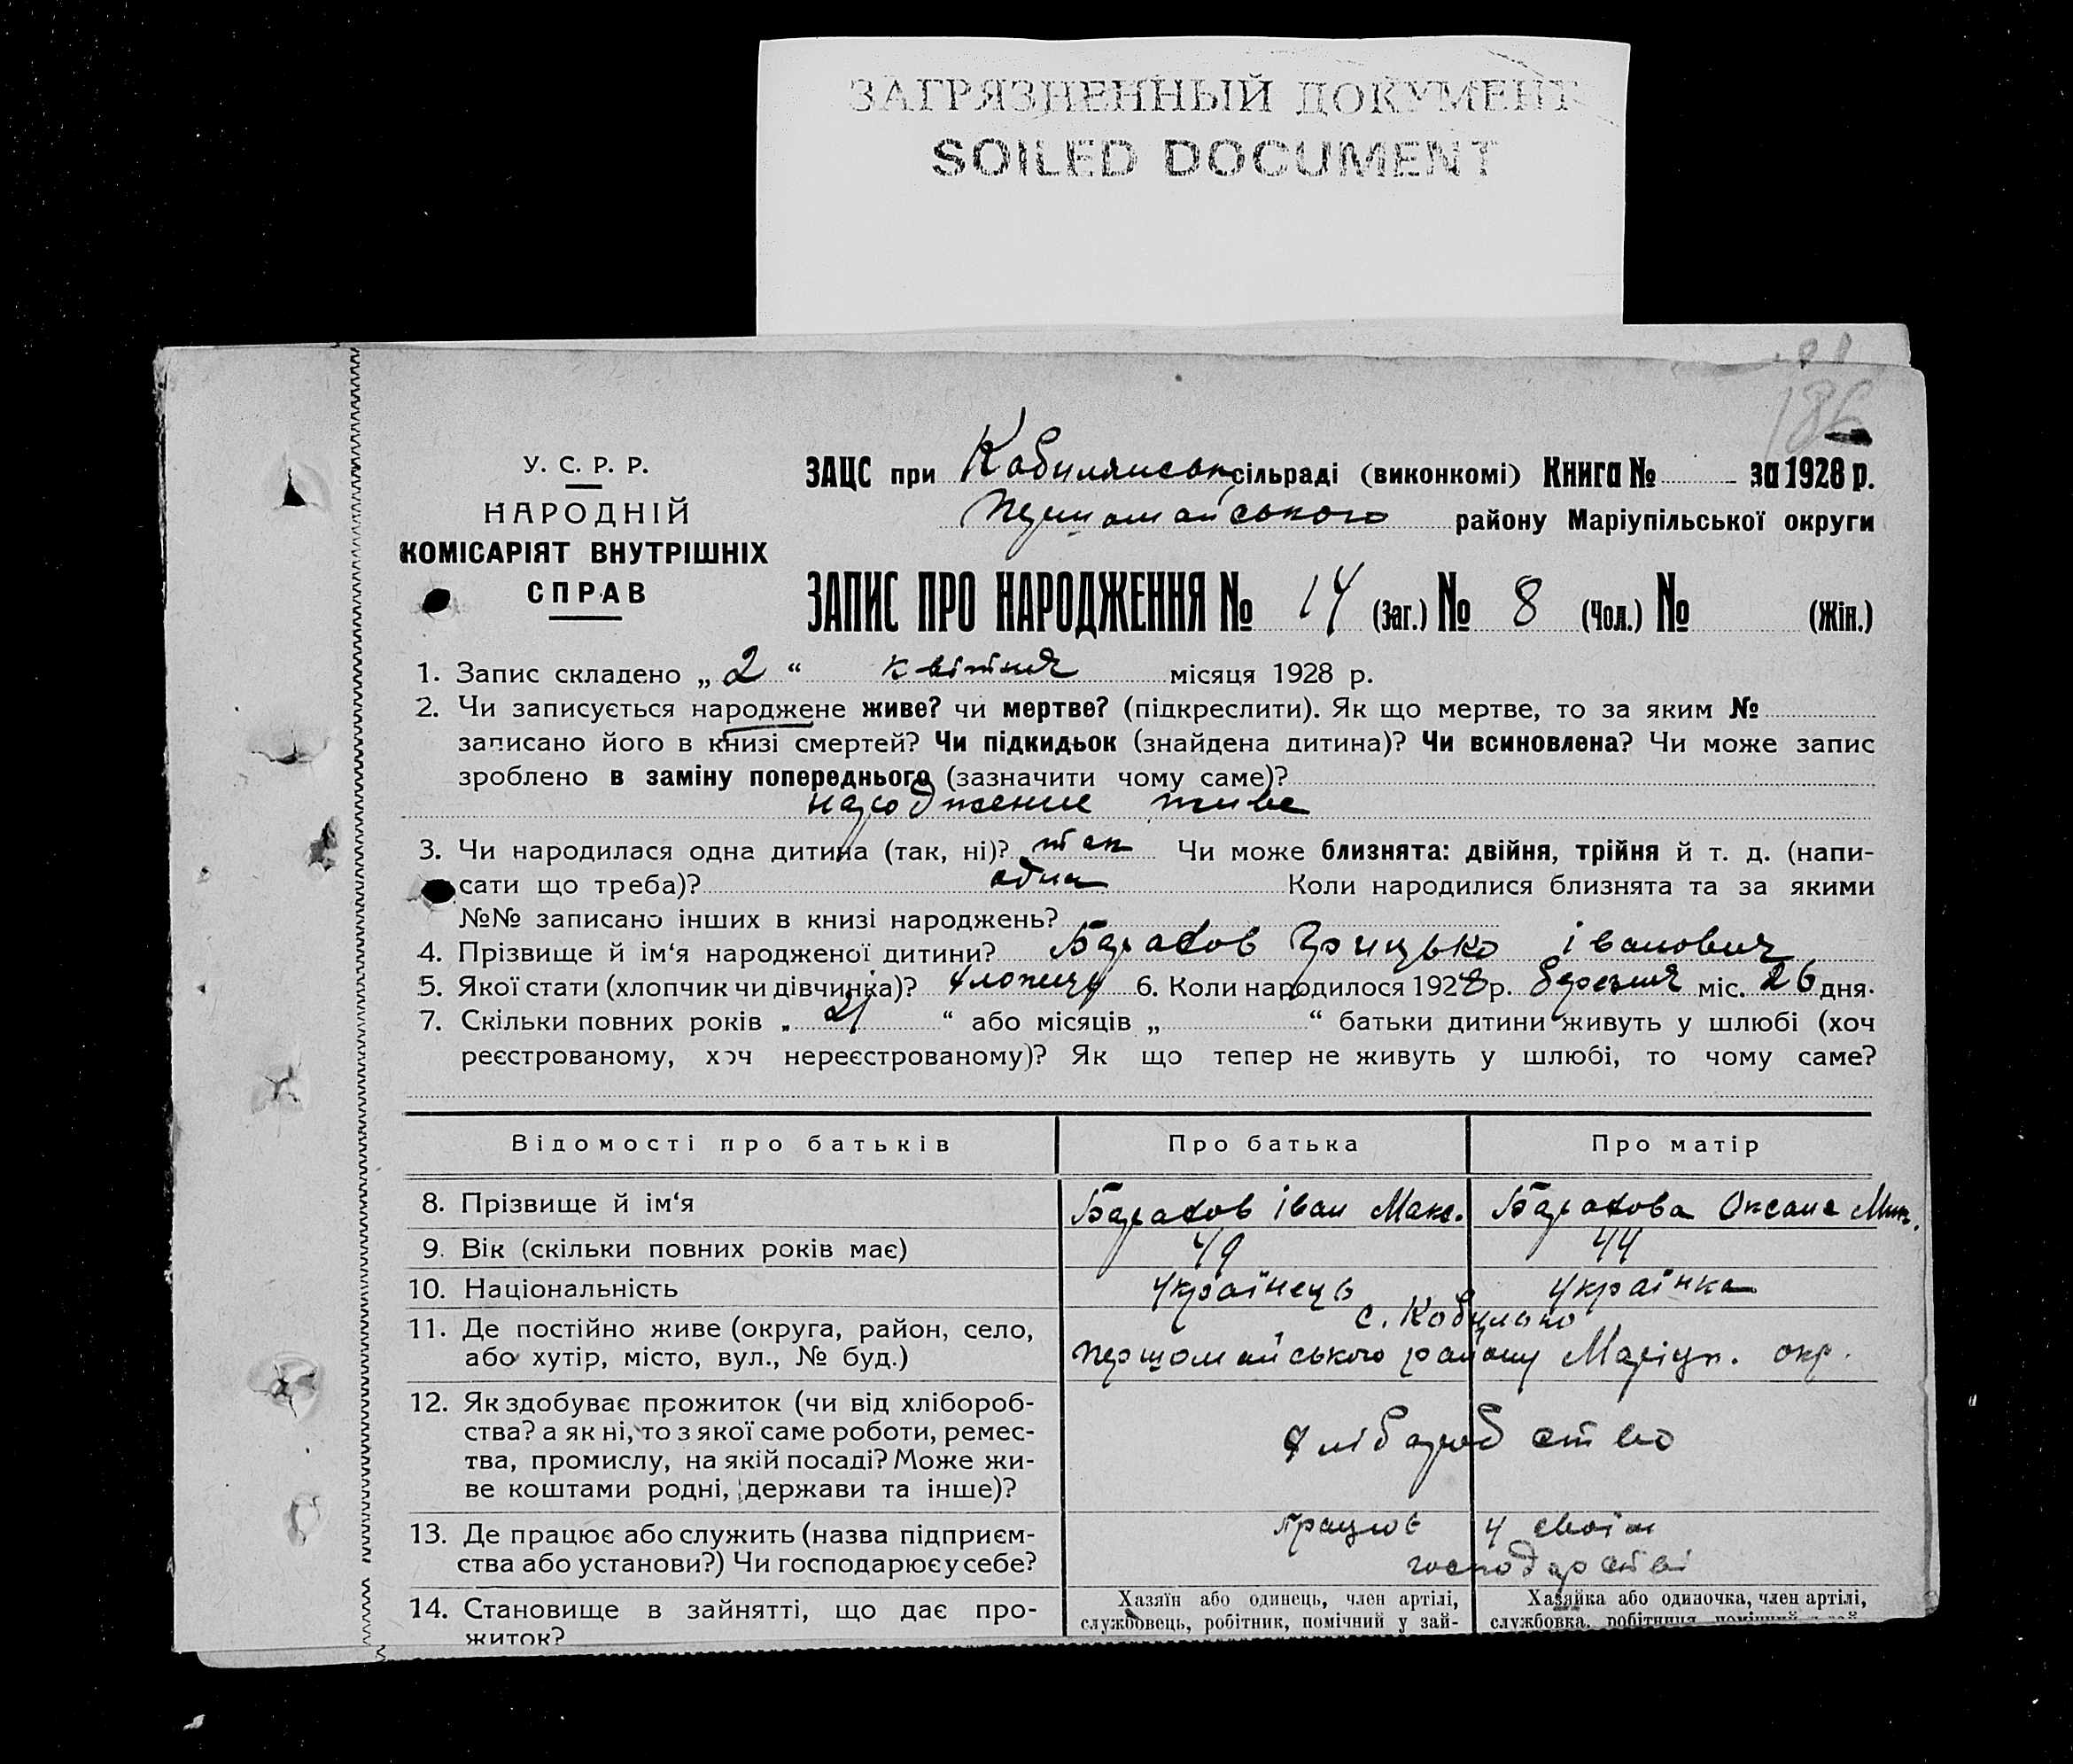 ЗАГРЯЗНЕННЫЙ ДОКУМЕНТ
SOILED DOCUMENT
186
У. С. Р. Р.
НАРОДНІЙ
КОМІСАРІЯТ ВНУТРІШНІХ
СПРАВ
ЗАЦС при Кобилянськ сільраді (виконкомі) Книга № за 1928 р.
Першомайського району Маріупільської округи
ЗАПИС ПРО НАРОДЖЕННЯ № 14 (Заг.) № 8 (Чол.) № (Жін.)
1. Запис складено „ 2 “ квітня місяця 1928 р.
2. Чи записується народжене живе? чи мертве? (підкреслити). Як що мертве, то за яким №
записано його в книзі смертей? Чи підкидьок (знайдена дитина)? Чи всиновлена? Чи може запис
зроблено в заміну попереднього (зазначити чому саме)?
народжение живе
3. Чи народилася одна дитина (так, ні)? так Чи може близнята: двійня, трійня й т. д. (напи-
сати що треба)? одна Коли народилися близнята та за якими
№№ записано інших в книзі народжень?
4. Прізвище й ім‘я народженої дитини? Барахов Грицько іванович
5. Якої стати (хлопчик чи дівчинка)? хлопчик 6. Коли народилося 1928 р. березня міс. 26 дня.
7. Скільки повних років „ 21 “ або місяців „ “ батьки дитини живуть у шлюбі (хоч
реєстрованому, хоч нереєстрованому)? Як що тепер не живуть у шлюбі, то чому саме?
Відомості про батьків Про батька Про матір
8. Прізвище й ім‘я Барахов іван Макс. Барахова Оксана Мик.
9. Вік (скільки повних років має) 49 44
10. Національність українець українка
11. Де постійно живе (округа, район, село, с. Кобильно
або хутір, місто, вул., № буд.) першомайського району Маріуп. окр.
12. Як здобуває прожиток (чи від хлібороб-
ства? а як ні, то з якої саме роботи, ремес- хліборобство
тва, промислу, на якій посаді? Може жи-
ве коштами родні, держави та інше)?
13. Де працює або служить (назва підприєм- працює у своїм
ства або установи?) Чи господарює у себе? господарстві
14. Становище в зайнятті, що дає про- Хазяїн або одинець, член артілі, Хазяйка або одиночка, член артілі,
житок? службовець, робітник, помічний у зай- службовка, робітниця